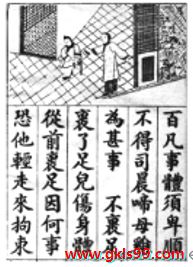 百凡事體須卑順
不得司晨啼母
為甚事　不裹足
裹了足兒傷身體
從前裹足因何事
恐他輕走來拘束
www.gkls99.com